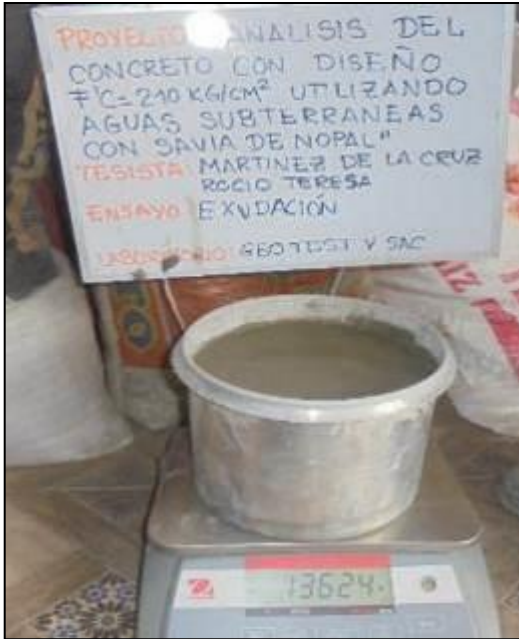 PROYECTO: "ANALISIS DEL
CONCRETO CON DISEÑO
F'C=210 KG/CM² UTILIZANDO
AGUAS SUBTERRANEAS
CON SAVIA DE NOPAL"
TESISTA: MARTINEZ DE LA CRUZ
ROCIO TERESA
ENSAYO: EXUDACIÓN
LABORATORIO: GEOTEST V SAC
13624